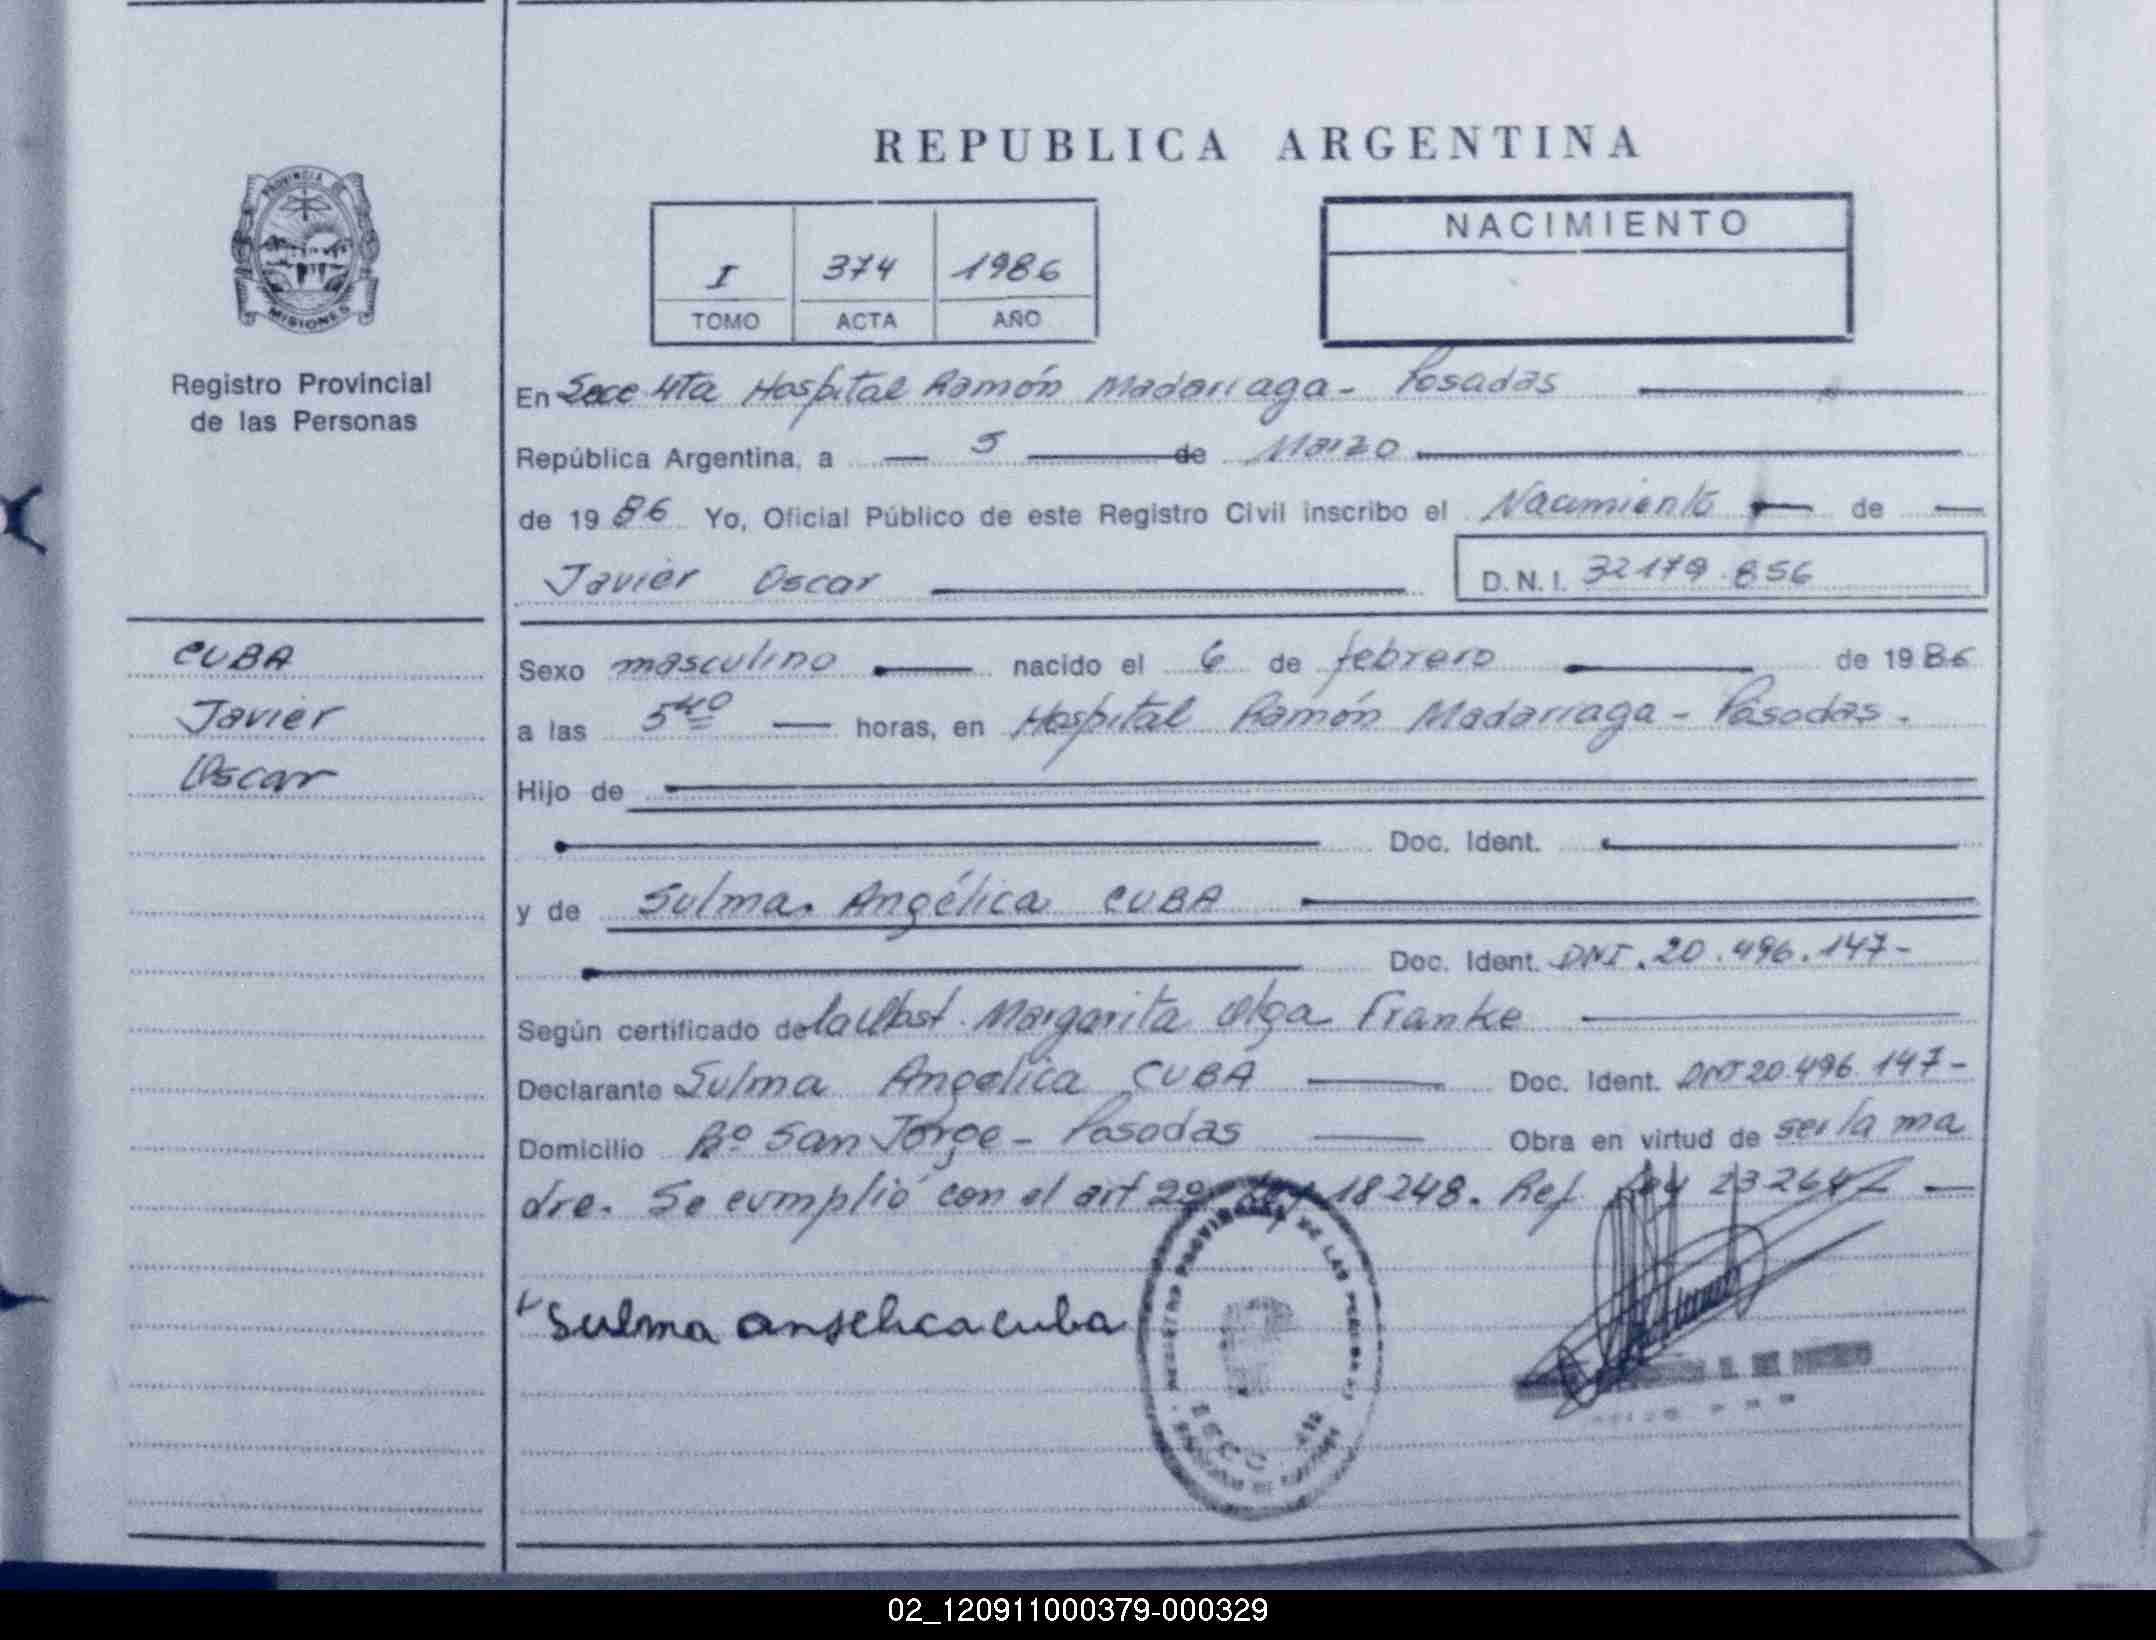 REPUBLICA ARGENTINA
PROVINCIA DE
MISIONES
Registro Provincial
de las Personas
I 374 1986
TOMO ACTA AÑO
NACIMIENTO
En Secc 4ta Hospital Ramón Madariaga - Posadas
República Argentina, a 5 de Marzo
de 1986 Yo, Oficial Público de este Registro Civil inscribo el Nacimiento de
Javier Oscar D.N.I. 32179.856
CUBA
Javier
Oscar
Sexo masculino nacido el 6 de febrero de 1986
a las 5 40 horas, en Hospital Ramón Madarriaga - Posadas.
Hijo de
Doc. Ident.
y de Sulma. Angélica CUBA
Doc. Ident. DNI. 20.496.147-
Según certificado de la Obst. Margarita Olga Franke
Declarante Sulma Angelica CUBA Doc. Ident. DNI 20.496.147-
Domicilio Bº San Jorge - Posadas Obra en virtud de ser la ma
dre. Se cumplió con el art 2º Ley 18248. Ref. Ley 23264
Sulma angelica cuba
REGISTRO PROVINCIAL DE LAS PERSONAS
SECC 4ta
02_120911000379-000329